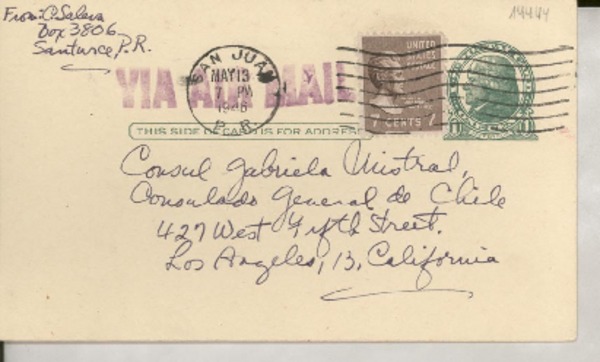 From: C. Saleva
Box 3806
Santurce, P.R.
14444
SAN JUAN
MAY 13
7 PM
1946
P. R.
VIA AIR MAIL
UNITED
STATES
7 CENTS 7
THIS SIDE OF CARD IS FOR ADDRESS
Consul Gabriela Mistral,
Consulado General de Chile
427 West Fifth Street.
Los Angeles, 13, California